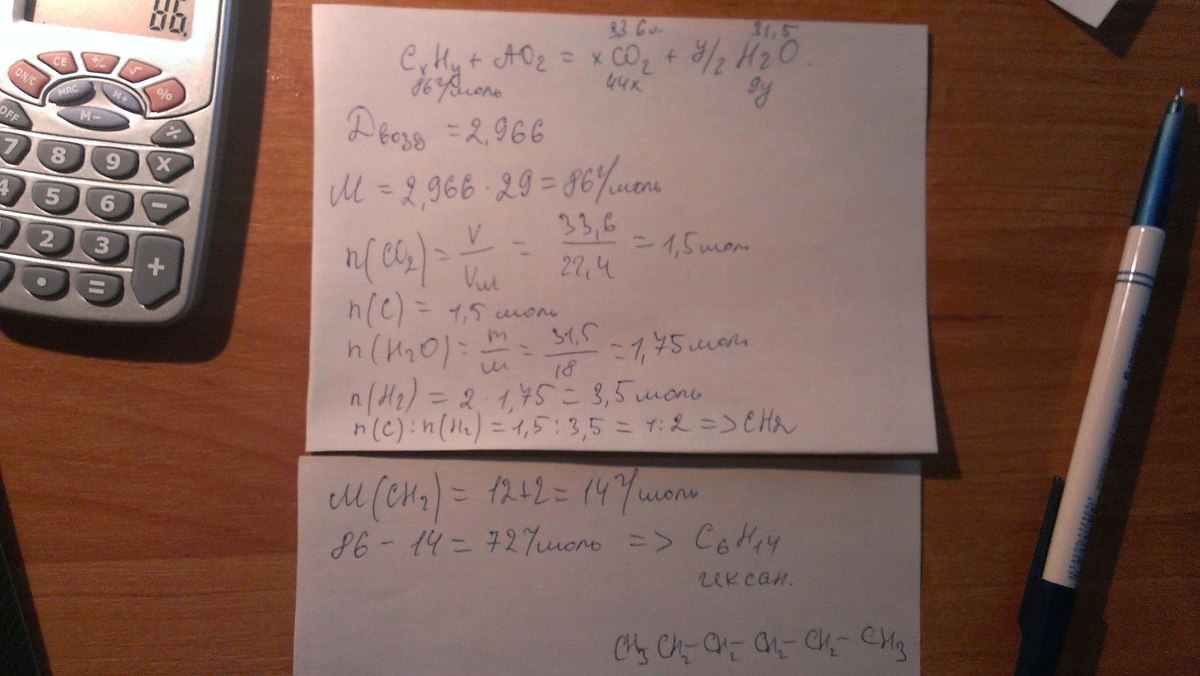 86.
CE
+/-
√
ON/C
MRC
M+
%
OFF
M−
÷
7 8 9 ×
4 5 6 −
2 3 +
• =
33.6л. 31,5
CxHy + AO2 = xCO2 + y/2 H2O.
86г/моль 44x 9y
Dвозд = 2,966
M = 2,966 · 29 = 86г/моль
n(CO2) = V/Vм = 33,6/22,4 = 1,5моль
n(C) = 1,5 моль
n(H2O) = m/м = 31,5/18 = 1,75моль
n(H2) = 2 · 1,75 = 3,5 моль
n(C) : n(H2) = 1,5 : 3,5 = 1 : 2 => CH2
M(CH2) = 12+2 = 14г/моль
86 − 14 = 72г/моль => C6H14
гексан.
CH3 CH2− CH2− CH2− CH2− CH3